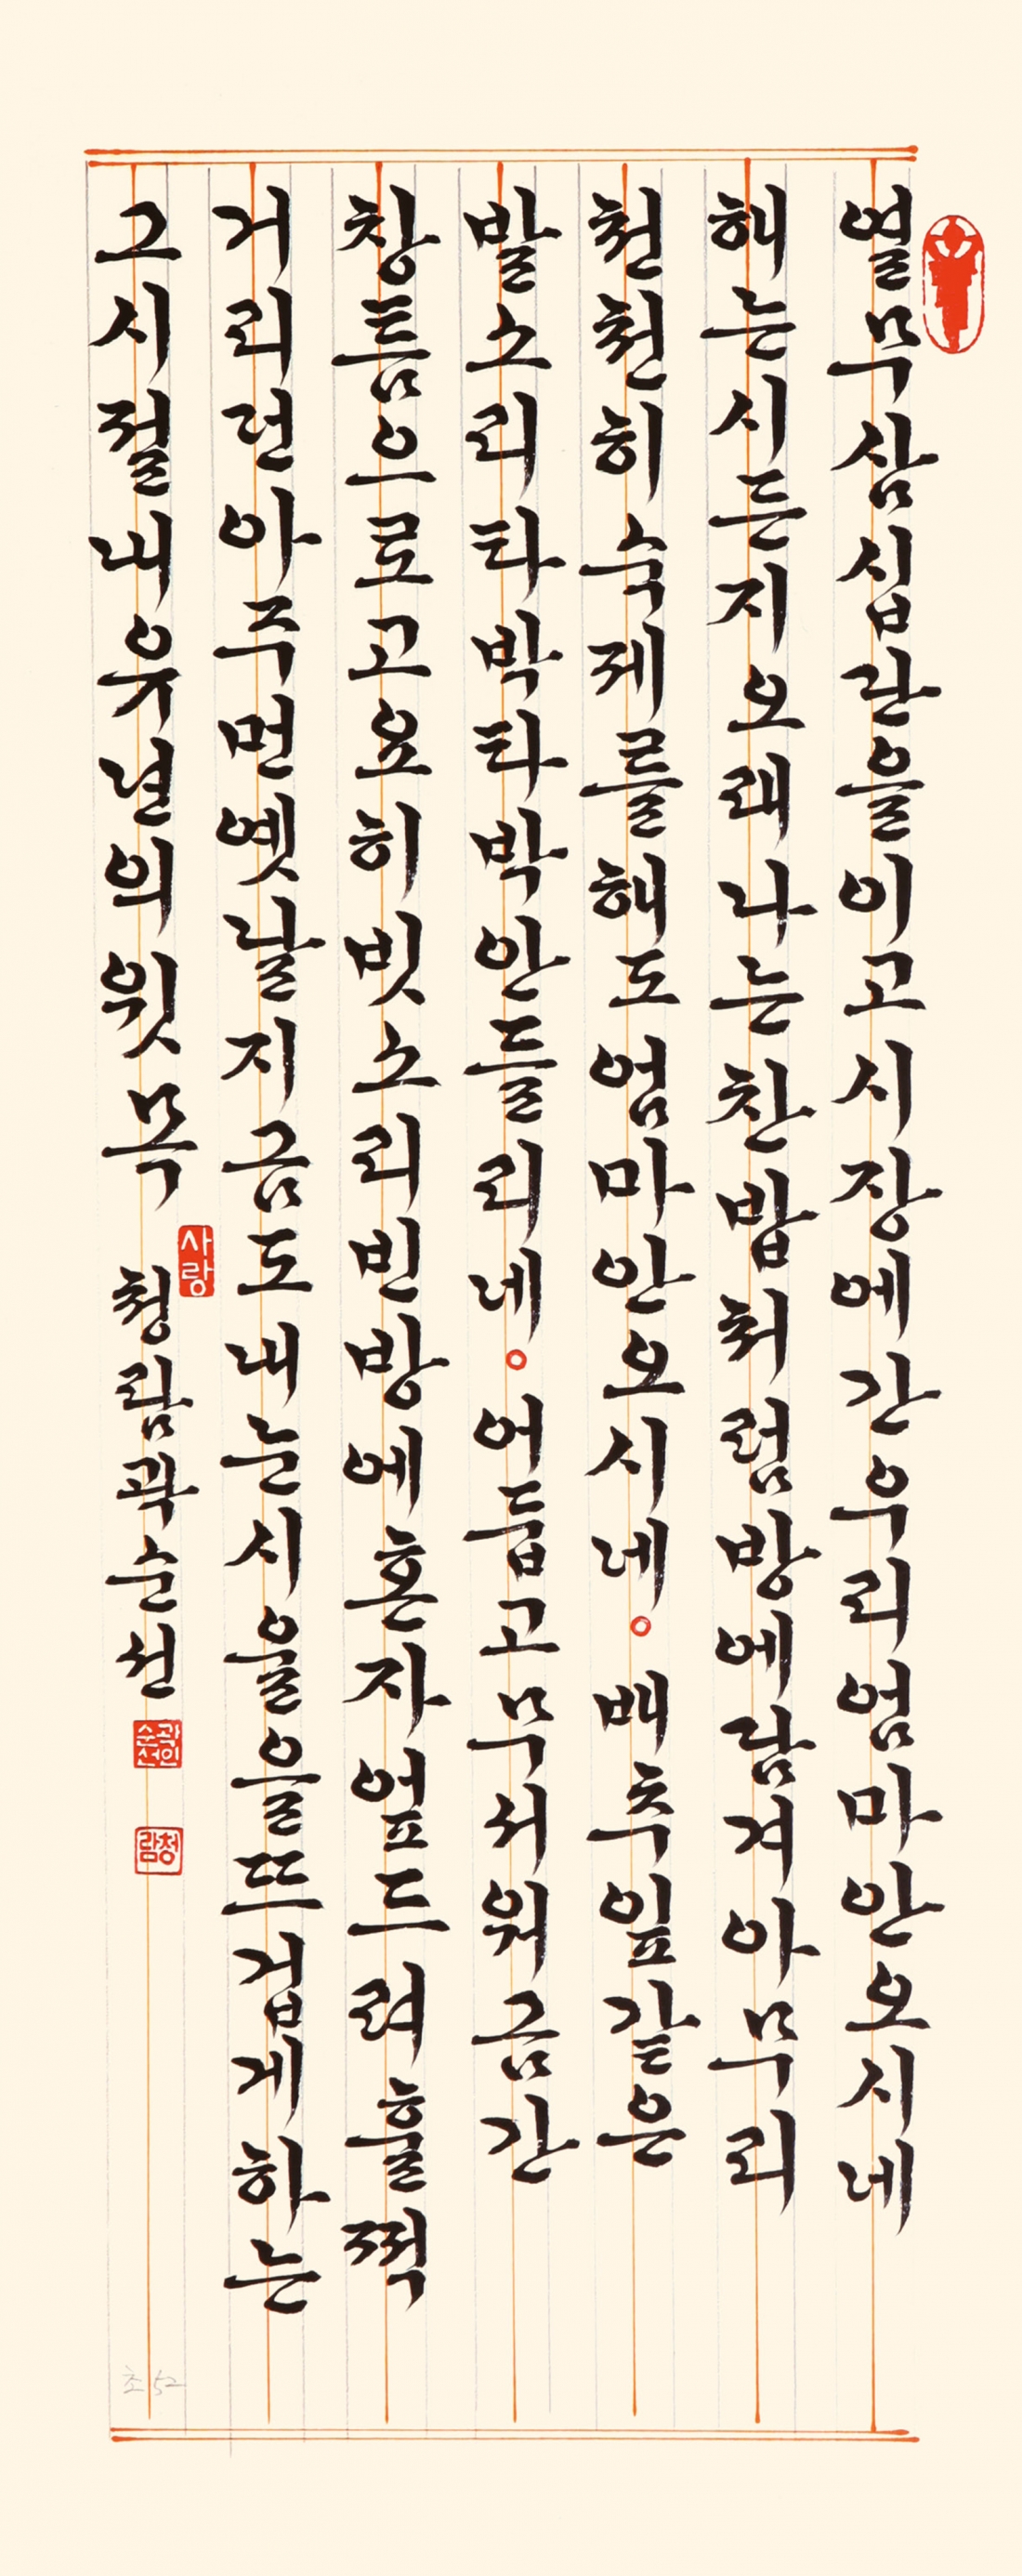 열무삼십단을이고시장에간우리엄마안오시네
해는시든지오래나는찬밥처럼방에담겨아무리
천천히숙제를해도엄마안오시네。배추잎같은
발소리타박타박안들리네。어둡고무서워금간
창틈으로고요히빗소리빈방에혼자엎드려훌쩍
거리던아주먼옛날지금도내눈시울을뜨겁게하는
그시절내유년의윗목
사랑
청람곽순선
곽인순선
청람
초 52